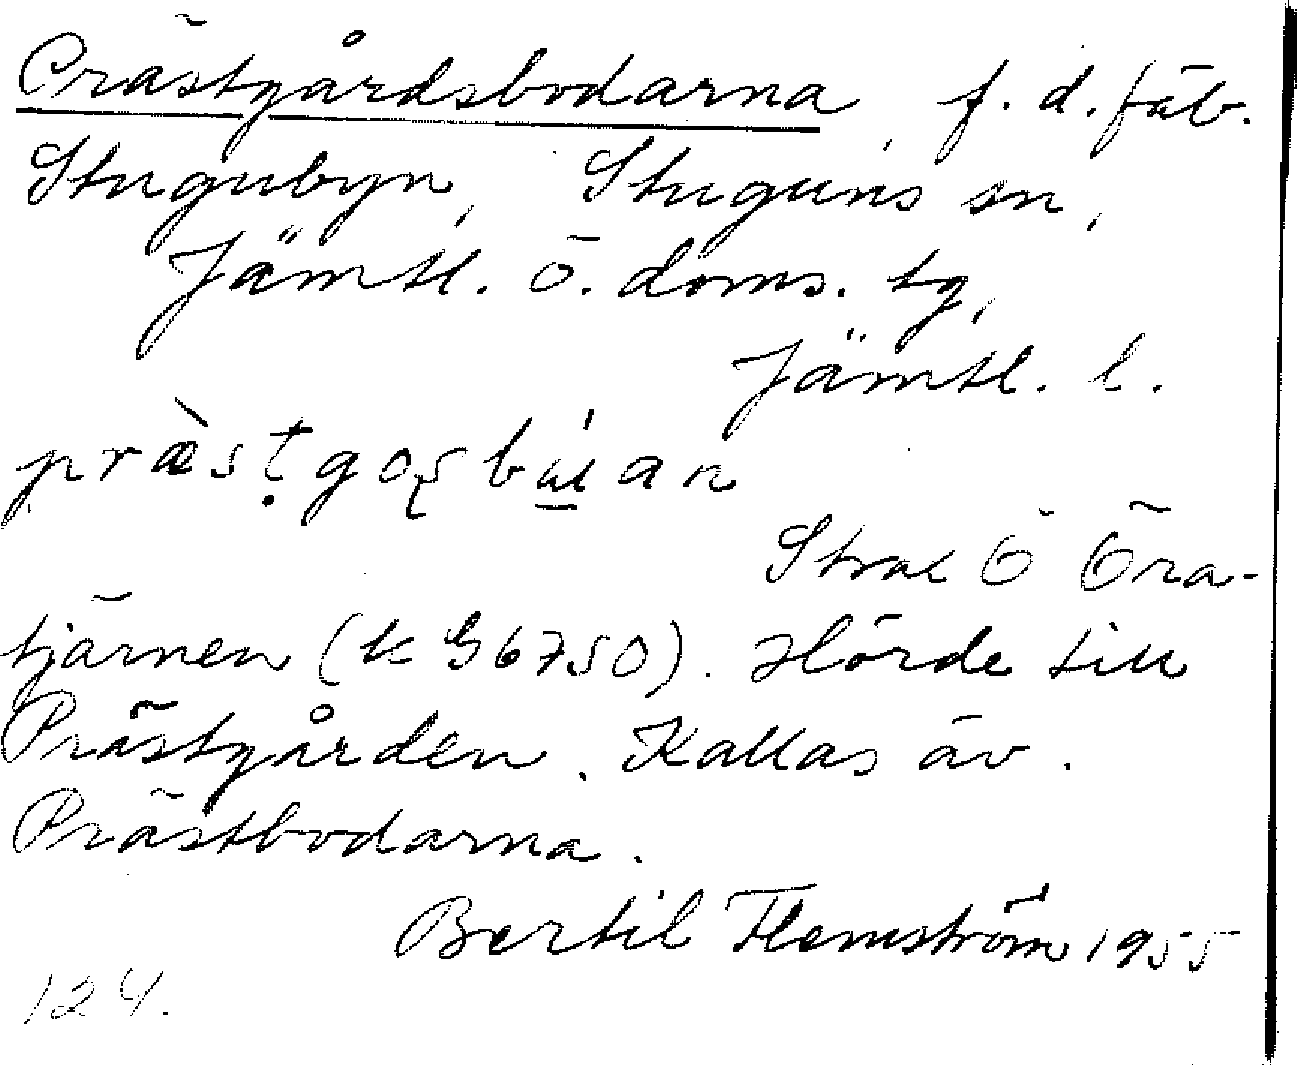 Prästgårdsbodarna, f.d. fäb.
Stugubyn, Stuguns sn,
Jämtl. ö. doms. tg,
Jämtl. l.
Strax Ö Öra-
tjärnen (k G6750). Hörde till
Prästgården. Kallas äv.
Prästbodarna.
Bertil Flemström 1955
124.